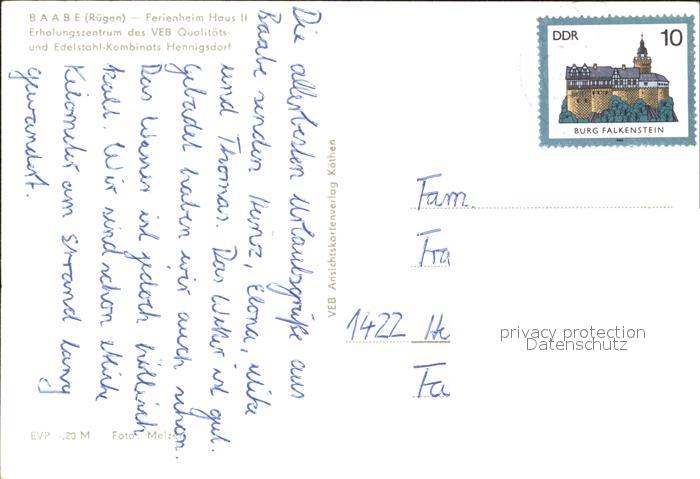 BAABE (Rügen) — Ferienheim Haus II
Erholungszentrum des VEB Qualitäts-
und Edelstahl-Kombinats Hennigsdorf
Die allerbesten Urlaubsgrüße aus
Baabe senden Heinz, Elona, Mike
und Thomas. Das Wetter ist gut.
Gebadet haben wir auch schon.
Das Wasser ist jedoch höllisch
kalt. Wir sind schon etliche
Kilometer am Strand lang
gewandert.
EVP -,20 M Foto: Melzer
VEB Ansichtskartenverlag Köthen
DDR 10
BURG FALKENSTEIN
Fam.
Fra
1422 He
Fa
privacy protection
Datenschutz